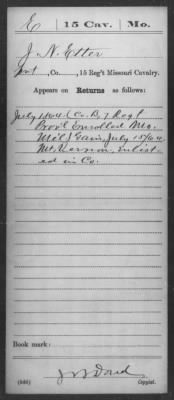 E 15 Cav. Mo.
J. N. Etter
Pvt, Co. , 15 Reg't Missouri Cavalry.
Appears on Returns as follows:
July 1864 (Co. B, 7 Regt
Prov'l Enrolled Mo.
Mil) Gain, July 15/64
Mt. Vernon, enlist-
ed in Co.
Book mark:
(546) Copyist.